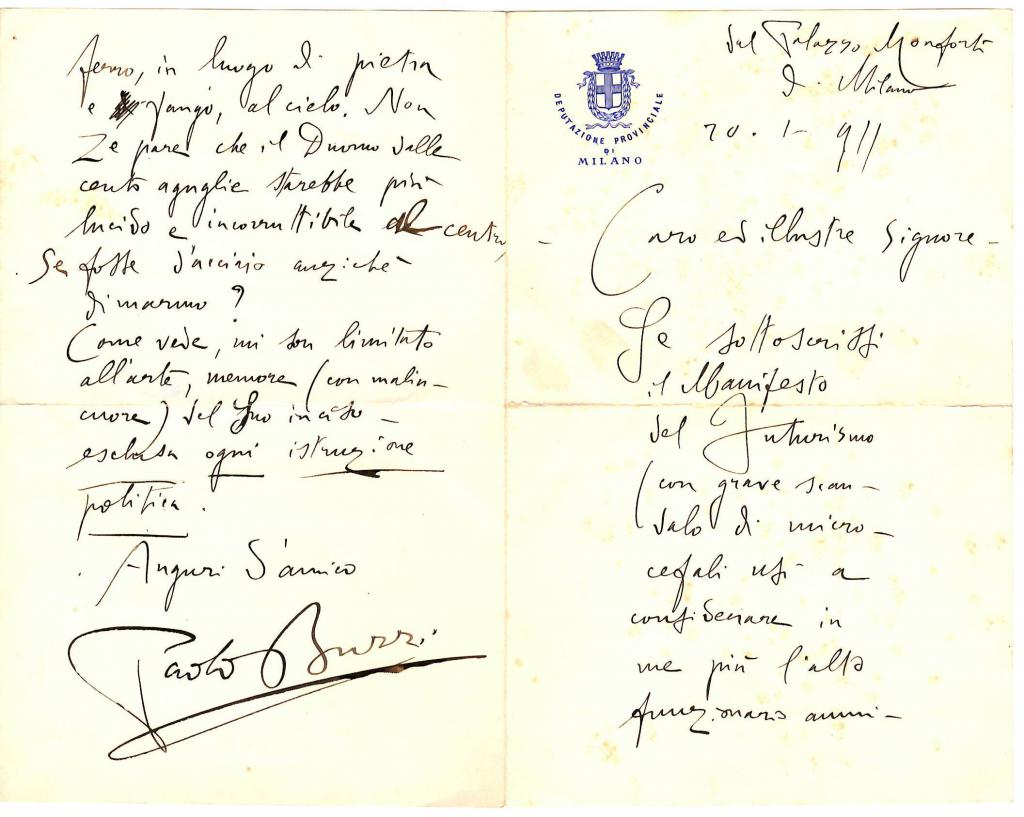 DEPUTAZIONE PROVINCIALE
DI
MILANO
dal Palazzo Monforte
di Milano
20.1-911
Caro ed illustre Signore -
Se sottoscrissi
il Manifesto
del Futurismo
(con grave scan-
dalo di micro-
cefali usi a
considerare in
me più l'alto
funzionario ammi-
ferro, in luogo di pietra
e fango, al cielo. Non
Le pare che il Duomo dalle
cento aguglie starebbe più
lucido e incorruttibile al centro,
se fosse d'acciaio anzichè
di marmo?
Come vede, mi son limitato
all'arte, memore (con malin-
cuore) del Suo inciso -
esclusa ogni istruzione
politica.
Auguri d'amico
Paolo Buzzi